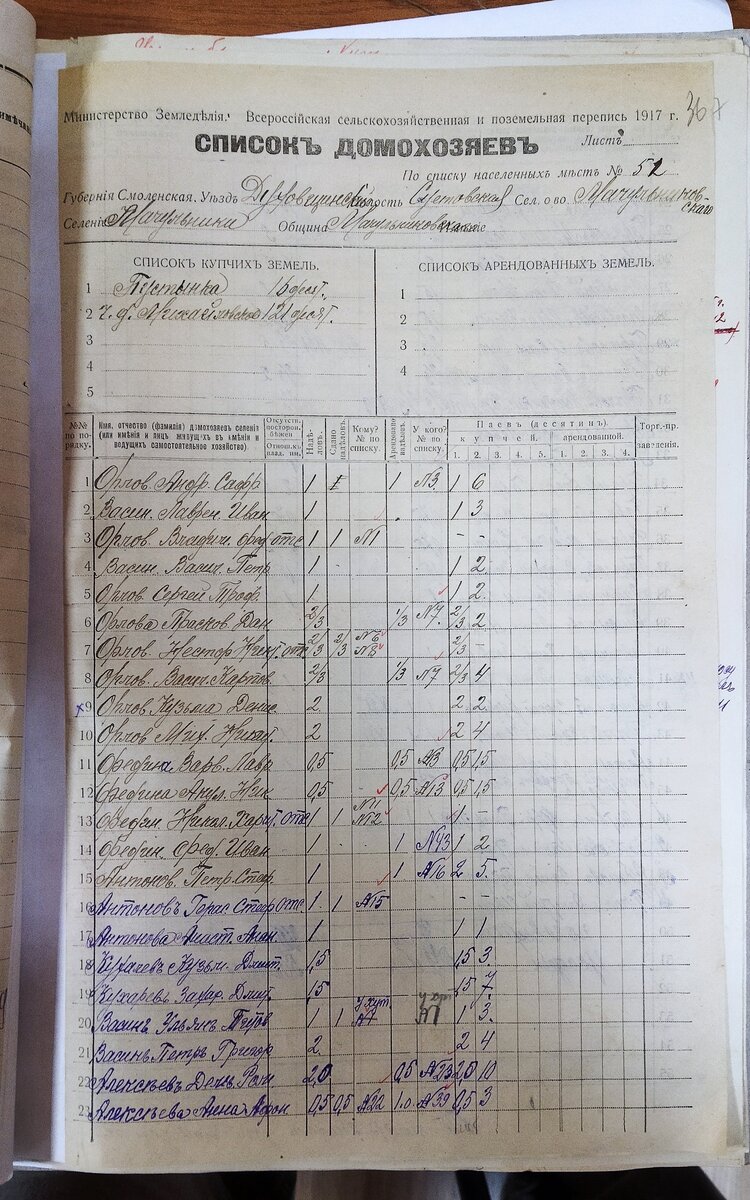 367
Министерство Земледѣлія. Всероссійская сельскохозяйственная и поземельная перепись 1917 г.
СПИСОКЪ ДОМОХОЗЯЕВЪ Листъ
По списку населенныхъ мѣстъ № 52
Губернія Смоленская. Уѣздъ волость Сел. о-во
Селеніе Мачульники Община
СПИСОКЪ КУПЧИХЪ ЗЕМЕЛЬ. СПИСОКЪ АРЕНДОВАННЫХЪ ЗЕМЕЛЬ.
1 Пустынка 16 десят. 1
2 ч. д. Михайловское 121 десят. 2
3 3
4 4
5
№№ по порядку. Имя, отчество (фамилія) домохозяевъ селенія (или имѣнія и лицъ живущ-хъ въ имѣніи и ведущихъ самостоятельное хозяйство) Отсутств. посторон. бѣжен Надѣловъ. Сдано надѣловъ. Кому? № по списку. Арендовано надѣловъ. У кого? № по списку. Паевъ (десятинъ) купчей. 1. 2. 3. 4. 5. арендованной. 1. 2. 3. 4. Торг.-пр. заведенія.
1 Орлов. Андр. Сафр 1 1 №3. 1 6
2 Васил. Лаврен. Иван 1 1 3
3 Орлов. Владим. Фед отс 1 1 №1 - -
4 Васил. Васил. Петр 1 1 2
5 Орлов. Сергей Троф. 1 1 2.
6 Орлова Прасков. Дан 2/3 1/3 №7. 2/3 2
7 Орлов. Нестор Никит. отс 2/3 2/3 №6 №8 2/3 -
8 Орлов. Васил. Карпов 2/3 1/3 №7 2/3 4
9 Орлов Кузьма Денис 2 2 2.
10 Орлов Мих. Никол 2 2 4
11 Федина Варв. Лавр 0,5 0,5 0,5 1,5
12 Федина Акул. Ник 0,5 0,5 №13 0,5 1,5
13 Федин. Никол. Харит. отс 1 1 №11 №12 1 -
14 Федин. Фед. Иван 1 1 №43 1 2
15 Антонов. Петр. Стеф. 1 1 №16 2 5.
16 Антоновъ Герас Стеф отс 1 1 №15 - -
17 Антонова Анаст. 1 1 1
18 Кухаревъ Кузьм. Дмит. 1,5 1,5 3.
19 Кухаревъ Захар. Дмит 1,5 1,5 7.
20 Васинъ Ульянъ Титов 1 1 у хут. у хут 1 3.
21 Васинъ Петръ Григор 2 2 4
22 Алексѣевъ 2,0 0,5 №23 2,0 10
23 Алексѣева Анна Афон 0,5 0,5 №22 1.0 №39 0,5 3